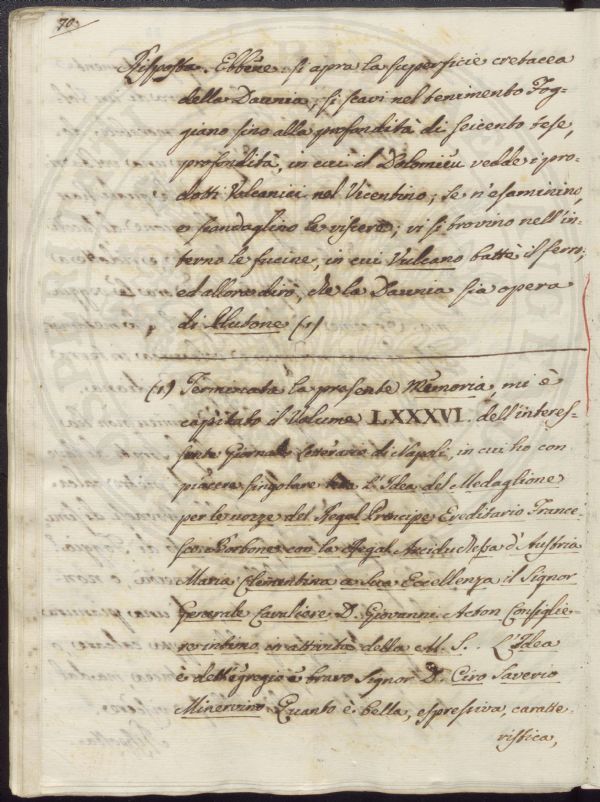 70.
Risposta. Ebbene si apra la superficie cretacea
della Daunia; si scavi nel tenimento Fog-
giano sino alla profondità di seicento tese,
profondità, in cui il Dolomieu vedde i pro-
dotti Vulcanici nel Vicentino; se n'esaminino,
e scandaglino le viscere; vi si trovino nell'in-
terno le fucine, in cui Vulcano battè il ferro;
ed allora dirò, che la Daunia sia opera
di Plutone (1)
(1) Terminata la presente Memoria, mi è
capitato il Volume LXXXVI. dell'interes-
sante Giornale Letterario di Napoli, in cui ho con
piacere singolare L'Idea del Medaglione
per le nozze del Real Principe Ereditario France-
sco Borbone con la Real Arciduchessa d'Austria
Maria Clementina a Sua Eccellenza il Signor
Generale Cavaliere D. Giovanni Acton Consiglie-
ro intimo in attività della M. S. L'Idea
è dell'egregio e bravo Signor D. Ciro Saverio
Minervino. Quanto è bella, espressiva, caratte-
ristica,